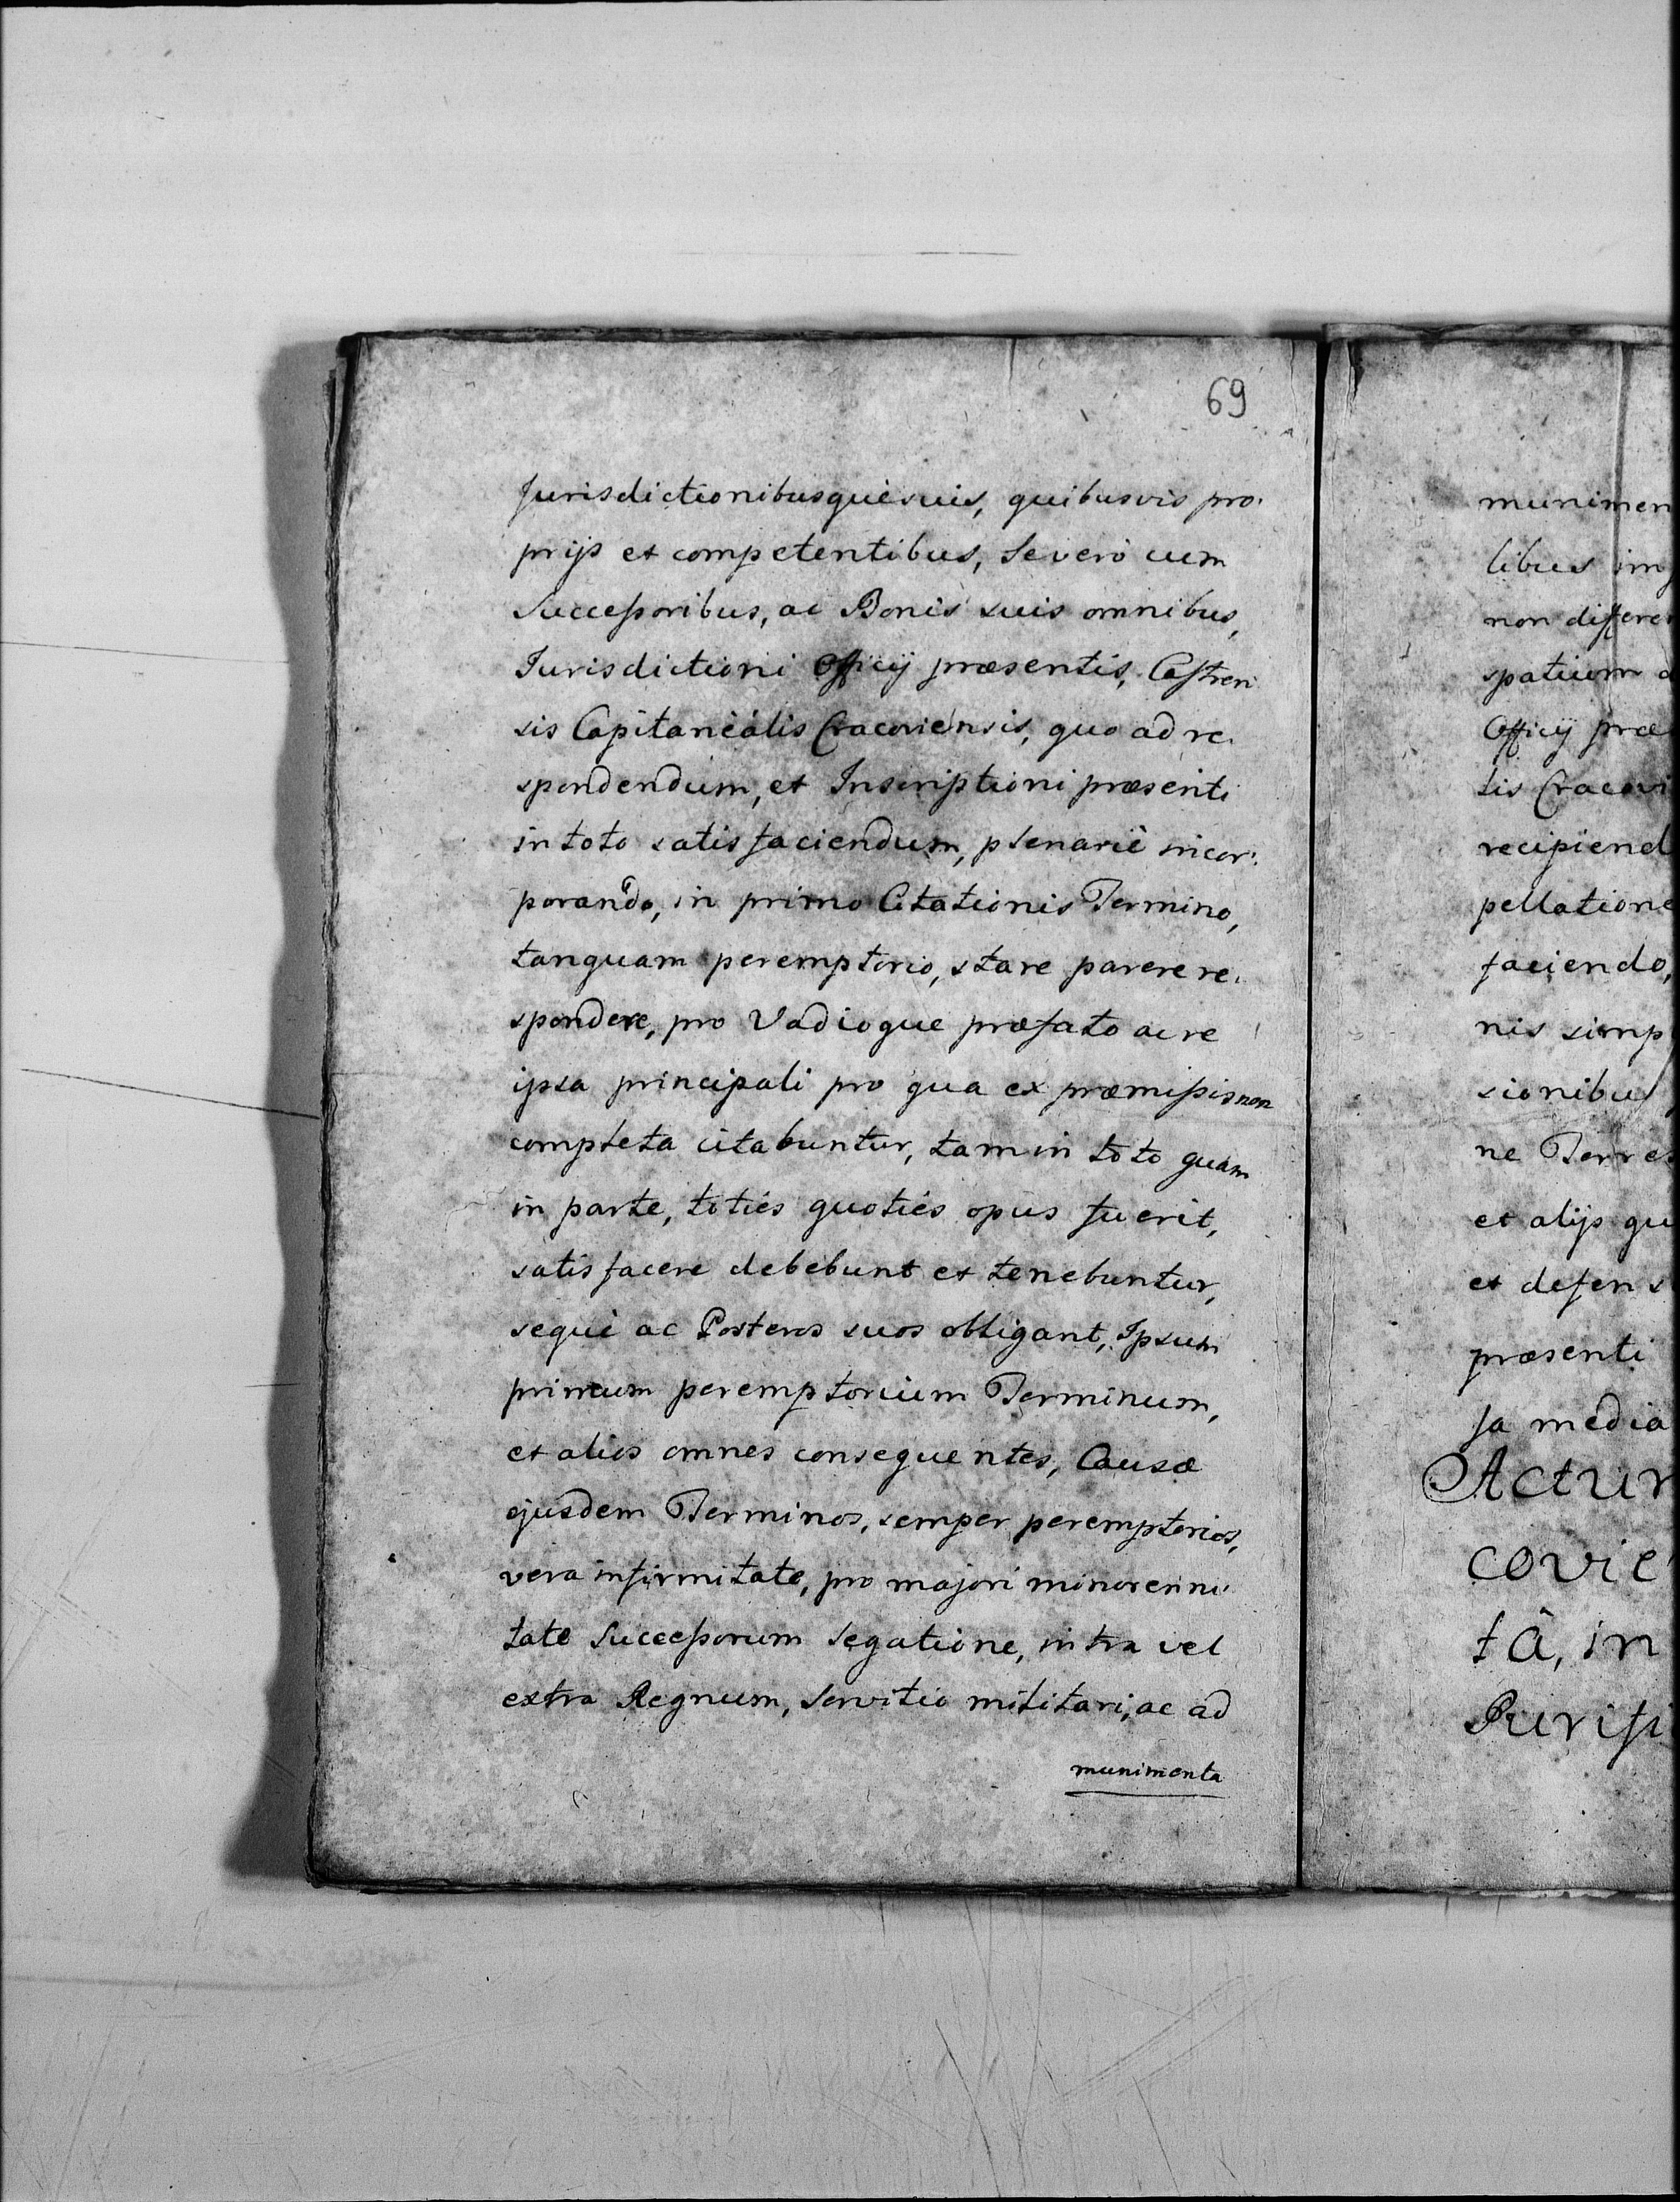 69
Jurisdictionibusquè suis, quibusvis pro-
prijs et competentibus, se verò cum
Successoribus, ac Bonis suis omnibus,
Iurisdictioni Officij præsentis, Castren-
sis Capitaneàlis Cracoviensis, quo ad re-
spondendum, et Inscriptioni præsenti
in toto satisfaciendum, plenariè incor-
porando, in primo Citationis Termino,
tanquam peremptorio, stare parere re-
spondere, pro Vadioque præfato ac re
ipsa principali pro qua ex præmissis non
completa citabuntur, tam in toto quam
in parte, totiés quotiés opus fuerit,
satisfacere debebunt et tenebuntur,
sequè ac Posteros suos obligant, Ipsum
primum peremptorium Terminum,
et alios omnes consequentes, Causæ
ejusdem Terminos, semper peremptorios,
vera infirmitate, pro majori minorenni-
tate Successorum legatione, intra vel
extra Regnum, servitio militari, ac ad
munimenta
munimen
libus im
non differe
spatium
Officij præ
lis Cracovi
recipiend
pellatione
faciendo,
nis simp
sionibus
ne Terres
et alijs qu
et defens
præsenti
sa media
Actum
covie
tâ, in
Purifi